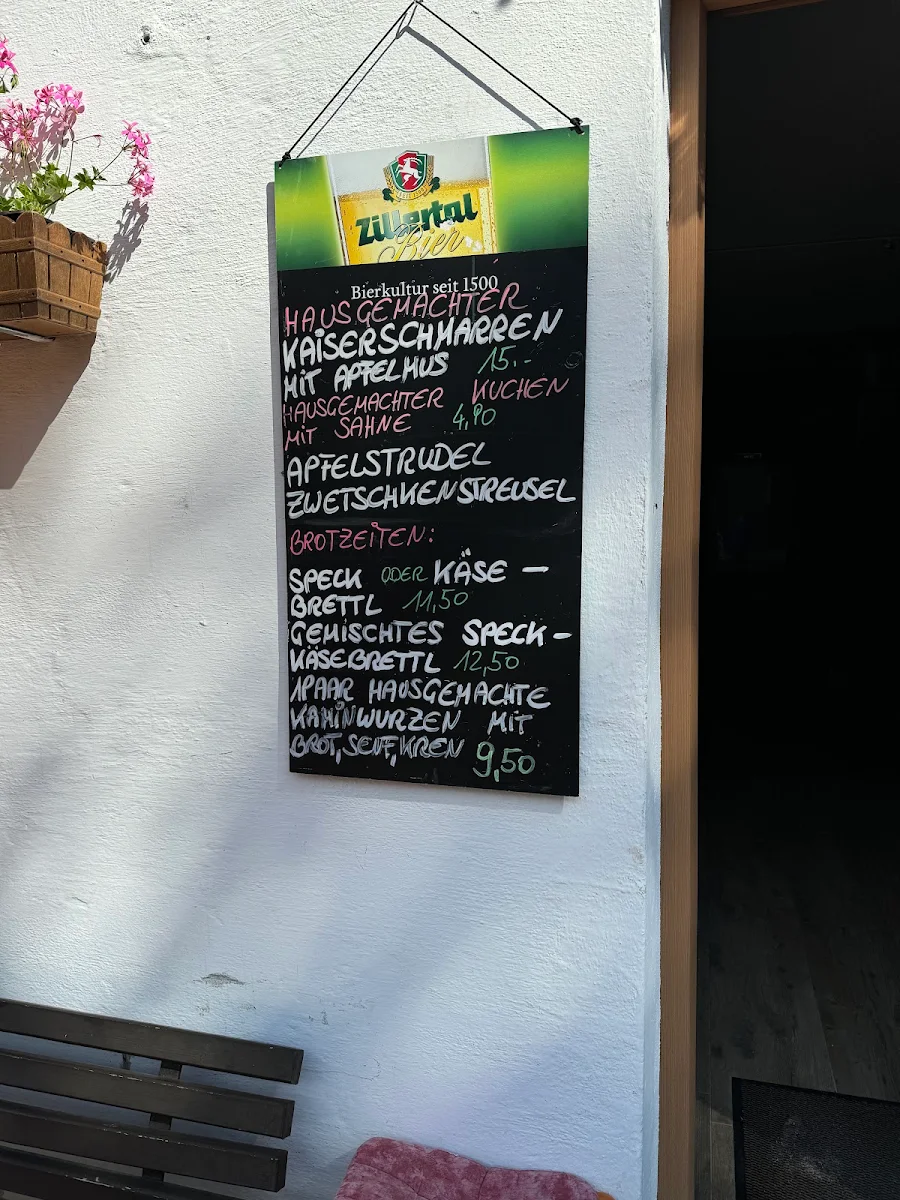 Zillertal
Bier
Bierkultur seit 1500
HAUSGEMACHTER
KAISERSCHMARREN
MIT APFELMUS 15.-
HAUSGEMACHTER KUCHEN
MIT SAHNE 4,90
APFELSTRUDEL
ZWETSCHKENSTREUSEL
BROTZEITEN:
SPECK ODER KÄSE -
BRETTL 11,50
GEMISCHTES SPECK-
KÄSEBRETTL 12,50
1PAAR HAUSGEMACHTE
KAMINWURZEN MIT
BROT, SENF, KREN 9,50